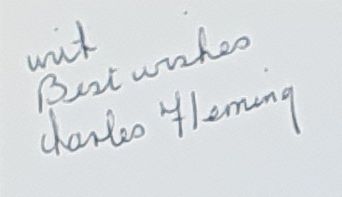 with
Best wishes
Charles Fleming